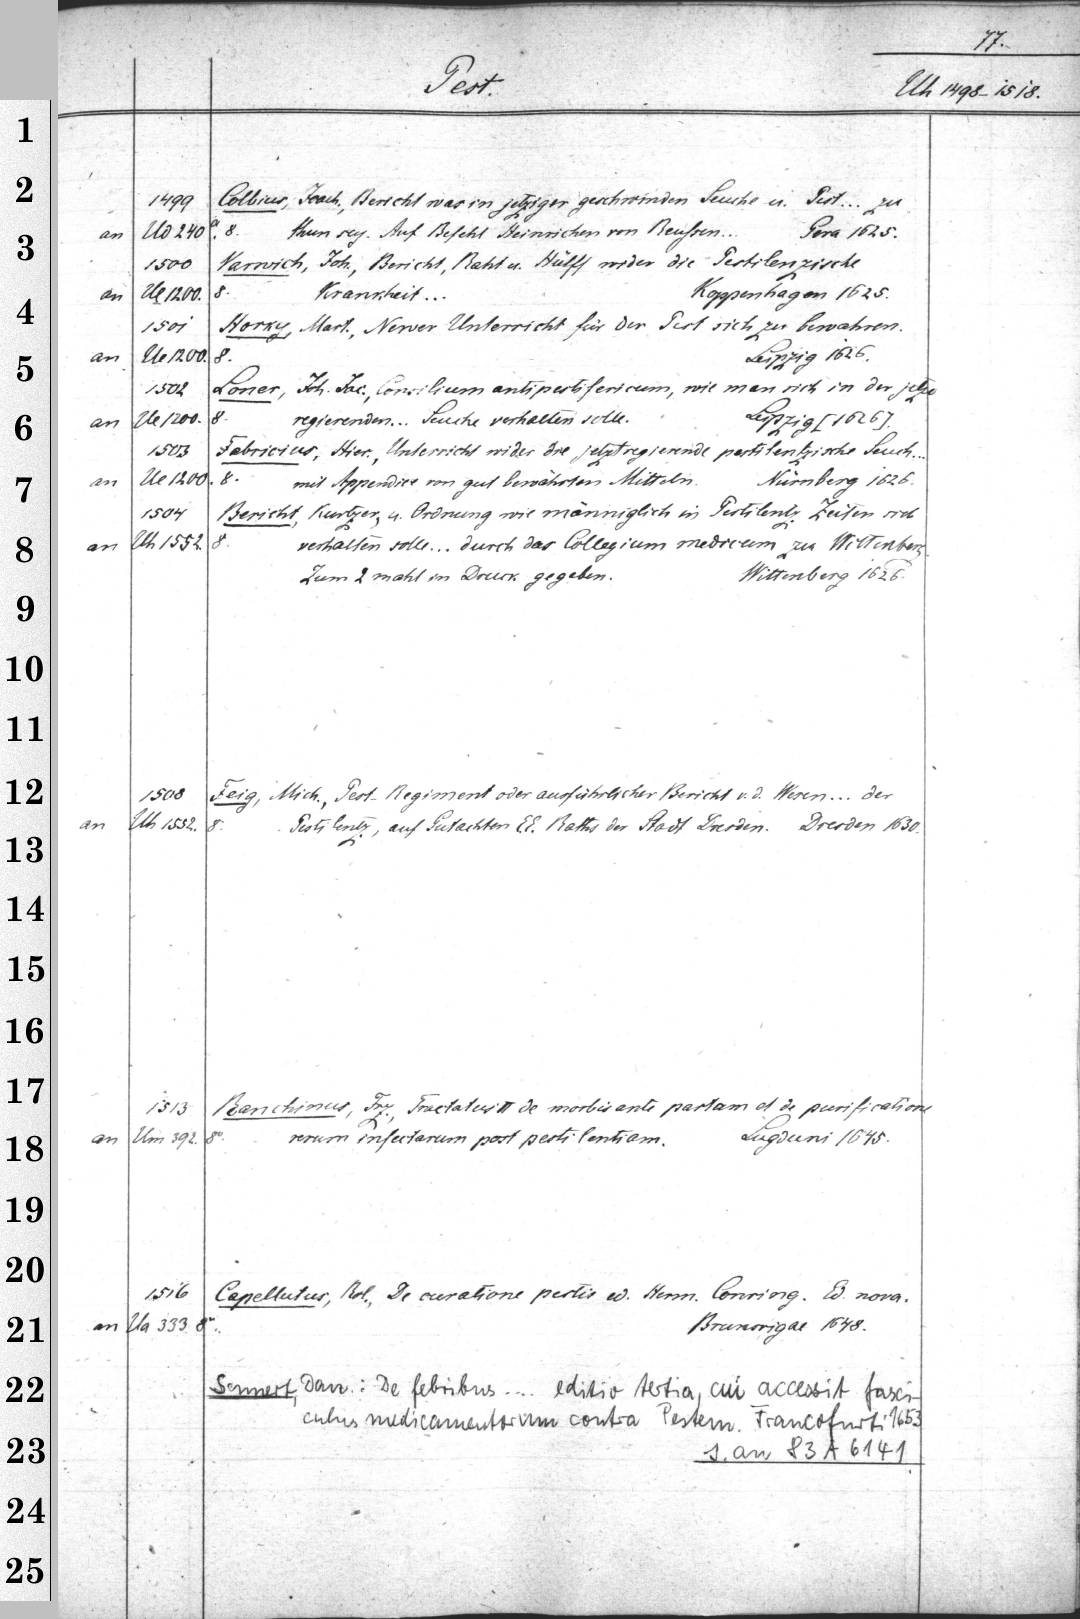 77.
Pest.
Uh 1498-1518.
1
2
1499 Colbius, Joach., Bericht was in jetziger geschwinden Seuche u. Pest... zu
3
an Ud 240 a. 8. thun sey. Auf Befehl Heinrichen von Reussen... Gera 1625.
1500 Varwich, Joh., Bericht, Raht u. Hülff wider die Pestilenzische
4
an Ue 1200. 8. Krankheit... Koppenhagen 1625.
1501 Horky, Mart., Newer Unterricht für der Pest sich zu bewahren.
5
an Ue 1200. 8. Leipzig 1626.
1502 Loner, Joh. Jac., Consilium antipestifericum, wie man sich in der jetzo
6
an Ue 1200. 8. regierenden... Seuche verhalten solle. Leipzig [1626].
1503 Fabricius, Hier., Unterricht wider die jetztregierende pestilentzische Seuch...
7
an Ue 1200. 8. mit Appendice von gut bewährten Mitteln. Nürnberg 1626.
1504 Bericht, Kurtzer, u. Ordnung wie männiglich in Pestilentz. Zeiten sich
8
an Uh 1552. 8. verhalten solle... durch das Collegium medicum zu Wittenberg.
Zum 2 mahl in Druck gegeben. Wittenberg 1626.
9
10
11
12
1508 Feig, Mich., Pest-Regiment oder ausführlicher Bericht v. d. Wesen... der
an Uh 1552. 8. Pestilentz, auf Gutachten EE. Raths der Stadt Dresden. Dresden 1630.
13
14
15
16
17
1513 Ranchinus, Frz., Tractatus II de morbis ante partum et de purificatione
18
an Um 392. 8°. rerum infectarum post pestilentiam. Lugduni 1645.
19
20
1516 Capellutus, Rol., De curatione pestis ed. Herm. Conring. Ed. nova.
21
an Ua 333 8°. Brunsvigae 1648.
22
Sennert, Dan.: De febribus .... editio tertia, cui accessit fasci-
culus medicamentorum contra Pestem. Francofurti 1653
23
s. an 83 A 6141
24
25